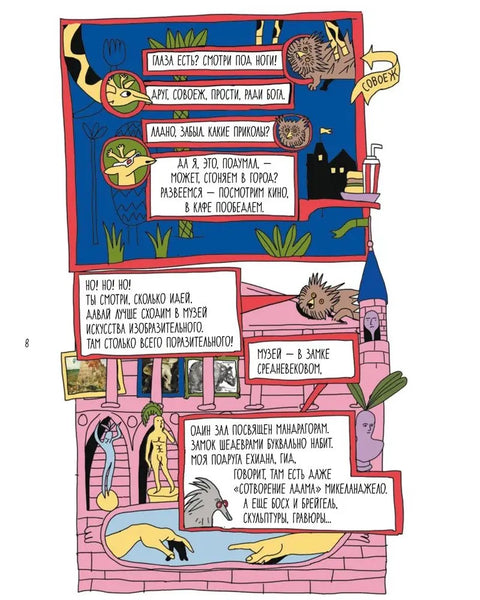 ГЛАЗА ЕСТЬ? СМОТРИ ПОД НОГИ!
СОВОЕЖ
ДРУГ СОВОЕЖ, ПРОСТИ, РАДИ БОГА.
ЛАДНО, ЗАБЫЛ. КАКИЕ ПРИКОЛЫ?
ДА Я, ЭТО, ПОДУМАЛ, –
МОЖЕТ, СГОНЯЕМ В ГОРОД?
РАЗВЕЕМСЯ – ПОСМОТРИМ КИНО,
В КАФЕ ПООБЕДАЕМ.
НО! НО! НО!
ТЫ СМОТРИ, СКОЛЬКО ИДЕЙ.
ДАВАЙ ЛУЧШЕ СХОДИМ В МУЗЕЙ
ИСКУССТВА ИЗОБРАЗИТЕЛЬНОГО.
ТАМ СТОЛЬКО ВСЕГО ПОРАЗИТЕЛЬНОГО!
8
МУЗЕЙ – В ЗАМКЕ
СРЕДНЕВЕКОВОМ.
ОДИН ЗАЛ ПОСВЯЩЕН МАНДРАГОРАМ.
ЗАМОК ШЕДЕВРАМИ БУКВАЛЬНО НАБИТ.
МОЯ ПОДРУГА ЕХИДНА, ГИД,
ГОВОРИТ, ТАМ ЕСТЬ ДАЖЕ
«СОТВОРЕНИЕ АДАМА» МИКЕЛАНДЖЕЛО.
А ЕЩЕ БОСХ И БРЕЙГЕЛЬ,
СКУЛЬПТУРЫ, ГРАВЮРЫ...